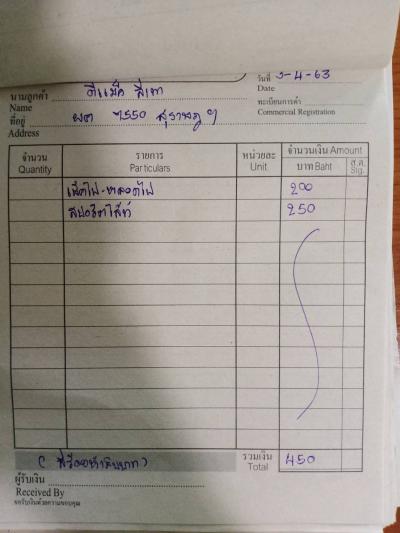 วันที่ 5-4-63
Date
นามลูกค้า ดีแม็ค สีเทา
Name
ทะเบียนการค้า
Commercial Registration
ที่อยู่ ผต 7550 สุราษฎฯ
Address
จำนวน รายการ หน่วยละ จำนวนเงิน Amount
Quantity Particulars Unit บาท Baht ส.ต. Stg.
เช็คไฟ-หลอดไฟ 200
สปอร์ตไล้ท์ 250
รวมเงิน 450
Total
(สี่ร้อยห้าสิบบาท)
ผู้รับเงิน
Received By
ขอรับเงินด้วยความขอบคุณ